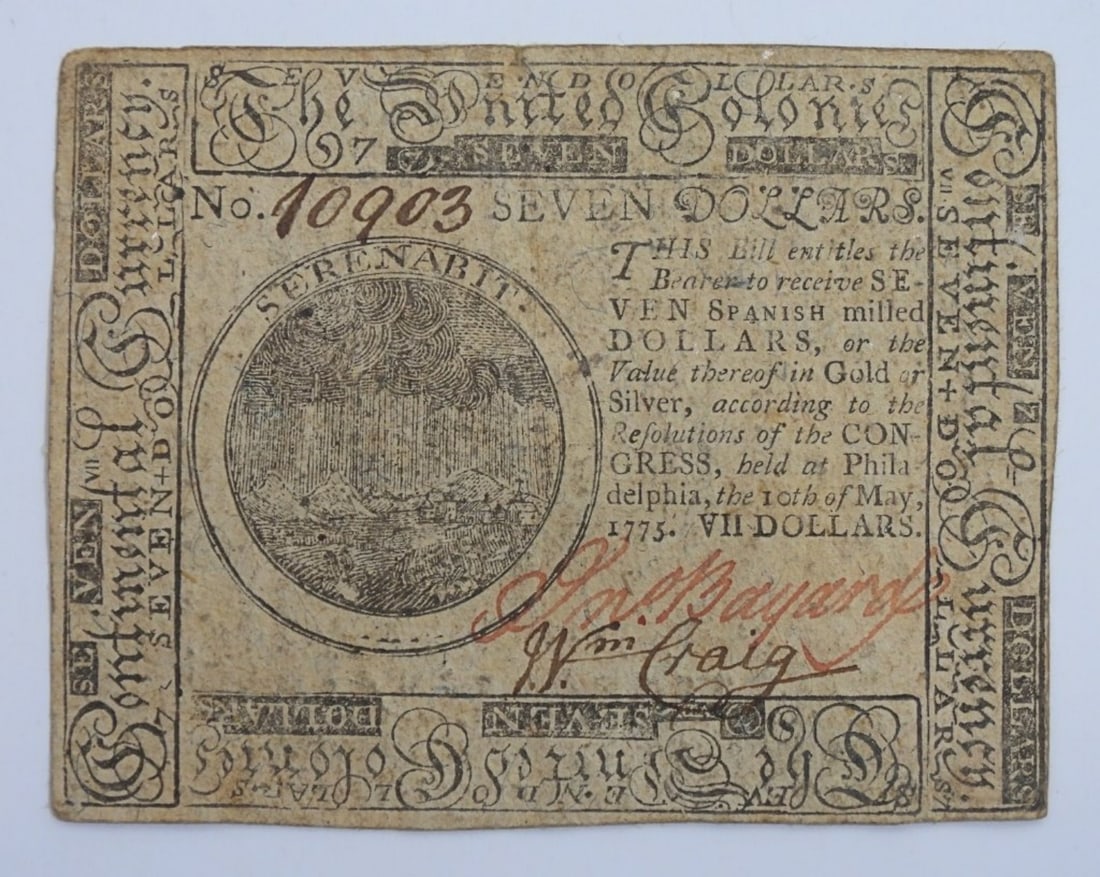 SEVEN DOLLARS
The United Colonies
7 SEVEN DOLLARS
No. 10903 SEVEN DOLLARS.
SERENABIT.
THIS Bill entitles the
Bearer to receive SE-
VEN SPANISH milled
DOLLARS, or the
Value thereof in Gold or
Silver, according to the
Reſolutions of the CON-
GRESS, held at Phila-
delphia, the 10th of May,
1775. VII DOLLARS.
Jno. Bayard
Wm. Craig
Continental Currency.
SEVEN DOLLARS
VII SEVEN+DOLLARS
Continental Currency.
SEVEN DOLLARS
VII SEVEN+DOLLARS
The United Colonies
SEVEN DOLLARS
SEVEN DOLLARS